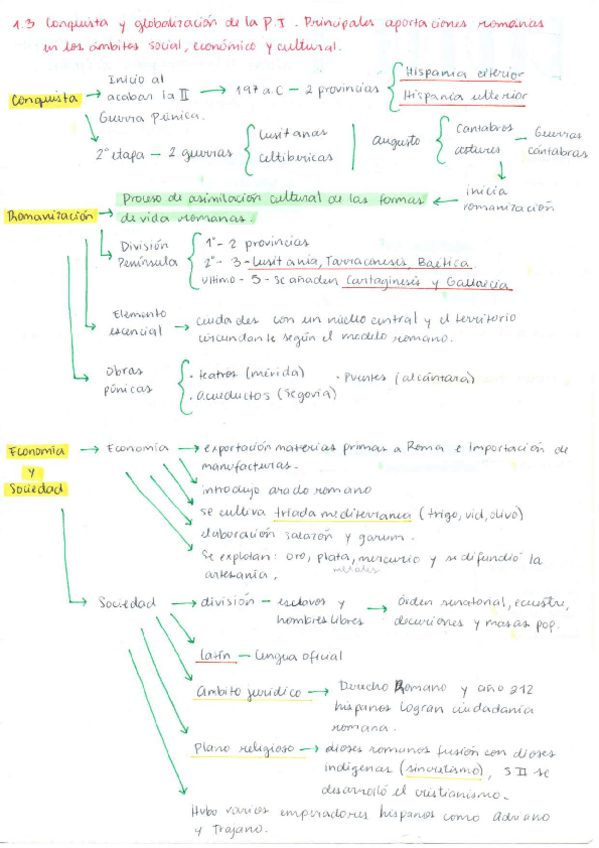 1.3 Conquista y globalización de la P.I. Principales aportaciones romanas
en los ámbitos social, económico y cultural.
Conquista
Inicio al
acabar la II
Guerra Púnica.
197 a.C - 2 provincias
Hispania citerior
Hispania ulterior
2ª etapa - 2 guerras
Lusitanas
celtibéricas
Augusto
Cantabros
astures
Guerras
cántabras
inicia
romanización
Romanización
Proceso de asimilación cultural de las formas
de vida romanas.
División
Península
1º - 2 provincias
2º - 3 - Lusitania, Tarraconesis, Baética
Ultimo - 5 - se añaden Cartaginesis y Gallaecia
Elemento
escencial
ciudades con un núcleo central y el territorio
circundante según el modelo romano.
Obras
púnicas
· teatros (mérida)
· Puentes (alcántara)
· acueductos (segovia)
Economía
y
Sociedad
Economía
exportación materias primas a Roma e Importación de
manufacturas.
introdujo arado romano
se cultiva tríada mediterranea (trigo, vid, olivo)
elaboración salazón y garum.
Se explotan: oro, plata, mercurio y se difundió la
metales
artesanía.
Sociedad
división - esclavos y
hombres libres
órden senatorial, ecuestre,
decuriones y masas pop.
latín - Lengua oficial
ámbito jurídico
Derecho Romano y año 212
hispanos logran ciudadanía
romana.
Plano religioso
dioses romanos fusión con dioses
indígenas (sincretismo), S II se
desarrolló el cristianismo.
Hubo varios emperadores hispanos como adriano
y Trajano.